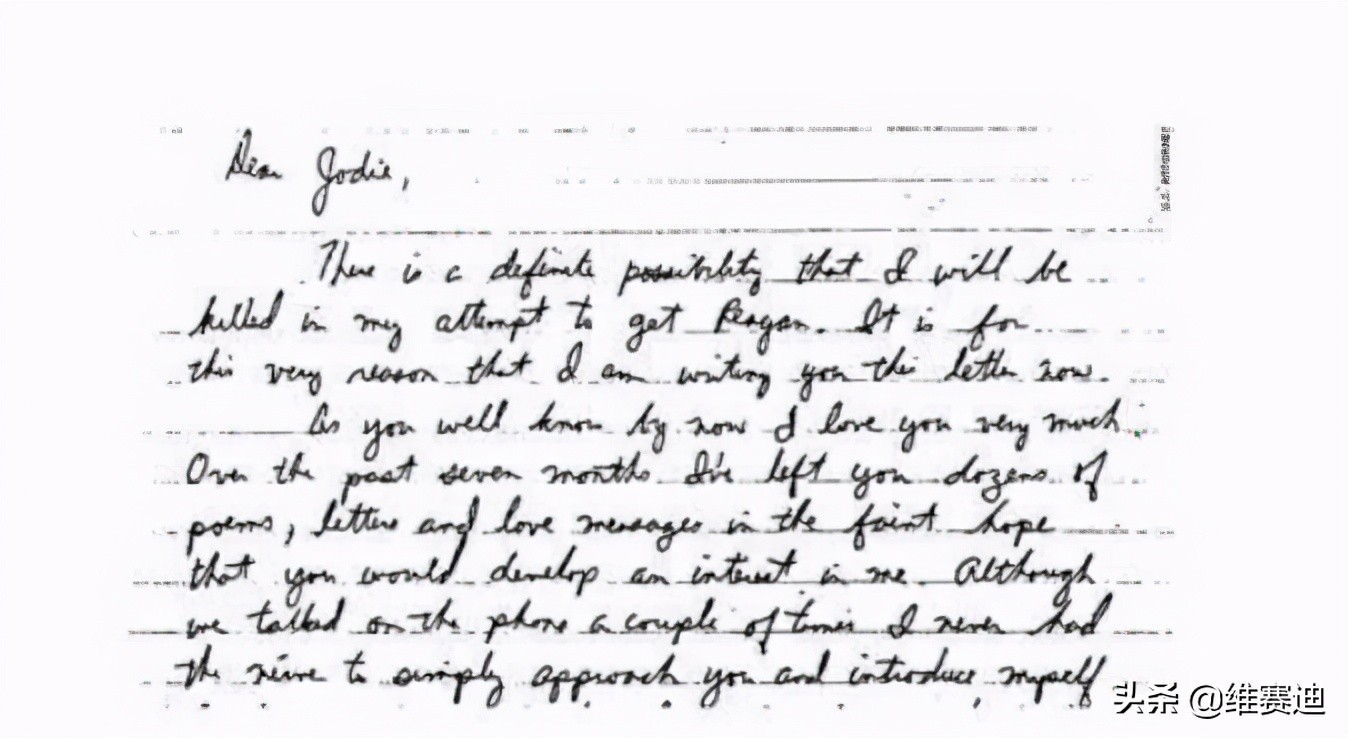 Dear Jodie,
There is a definite possibility that I will be
killed in my attempt to get Reagan. It is for
this very reason that I am writing you this letter now.
As you well know by now I love you very much.
Over the past seven months I've left you dozens of
poems, letters and love messages in the faint hope
that you would develop an interest in me. Although
we talked on the phone a couple of times I never had
the nerve to simply approach you and introduce myself
头条 @维赛迪